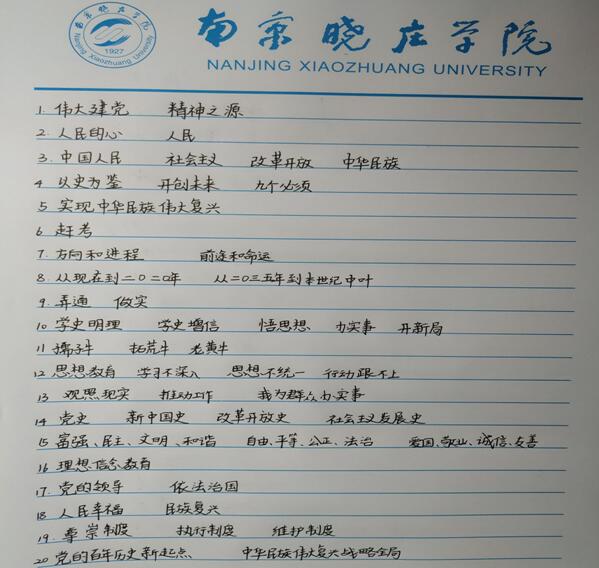 南京晓庄学院
NANJING XIAOZHUANG UNIVERSITY
南京晓庄学院
1927
Nanjing Xiaozhuang University
1. 伟大建党 精神之源
2. 人民的心 人民
3. 中国人民 社会主义 改革开放 中华民族
4 以史为鉴 开创未来 九个必须
5 实现中华民族伟大复兴
6 赶考
7. 方向和进程 前途和命运
8. 从现在到二〇二〇年 从二〇三五年到本世纪中叶
9. 弄通 做实
10 学史明理 学史增信 悟思想 办实事 开新局
11 孺子牛 拓荒牛 老黄牛
12 思想教育 学习不深入 思想不统一 行动跟不上
13 观照现实 推动工作 我为群众办实事
14 党史 新中国史 改革开放史 社会主义发展史
15 富强、民主、文明、和谐 自由、平等、公正、法治 爱国、敬业、诚信、友善
16 理想信念教育
17. 党的领导 依法治国
18 人民幸福 民族复兴
19. 尊崇制度 执行制度 维护制度
20 党的百年历史新起点 中华民族伟大复兴战略全局